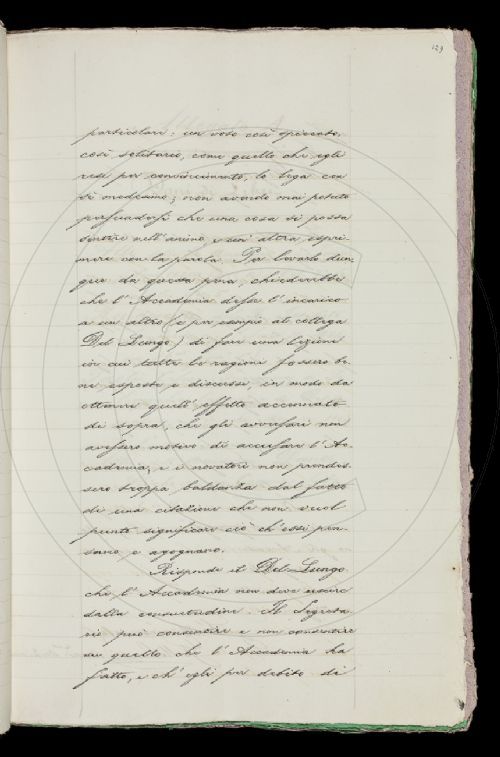 129
particolari: un voto così spiccato,
così solitario, come quello che egli
rese per convincimento, lo lega con
sè medesimo; non avendo mai potuto
persuadersi che una cosa si possa
sentire nell'animo, e un'altra espri-
mere con la parola. Per levarlo dun-
que da questa pena, chiederebbe
che l'Accademia desse l'incarico
a un altro (e per esempio al collega
Del Lungo) di fare una lezione
in cui tutte le ragioni fossero be-
ne esposte e discusse, in modo da
ottenere quell'effetto accennato
di sopra, che gli avversari non
avessero motivo di accusare l'Ac-
cademia, e i novatori non prendes-
sero troppa baldanza dal fatto
di una citazione che non vuol
punto significare ciò ch'essi pen-
sano e agognano.
Risponde il Del Lungo
che l'Accademia non deve uscire
dalla consuetudine. Il Segreta-
rio può consentire e non consentire
in quello che l'Accademia ha
fatto, e ch'egli per debito di